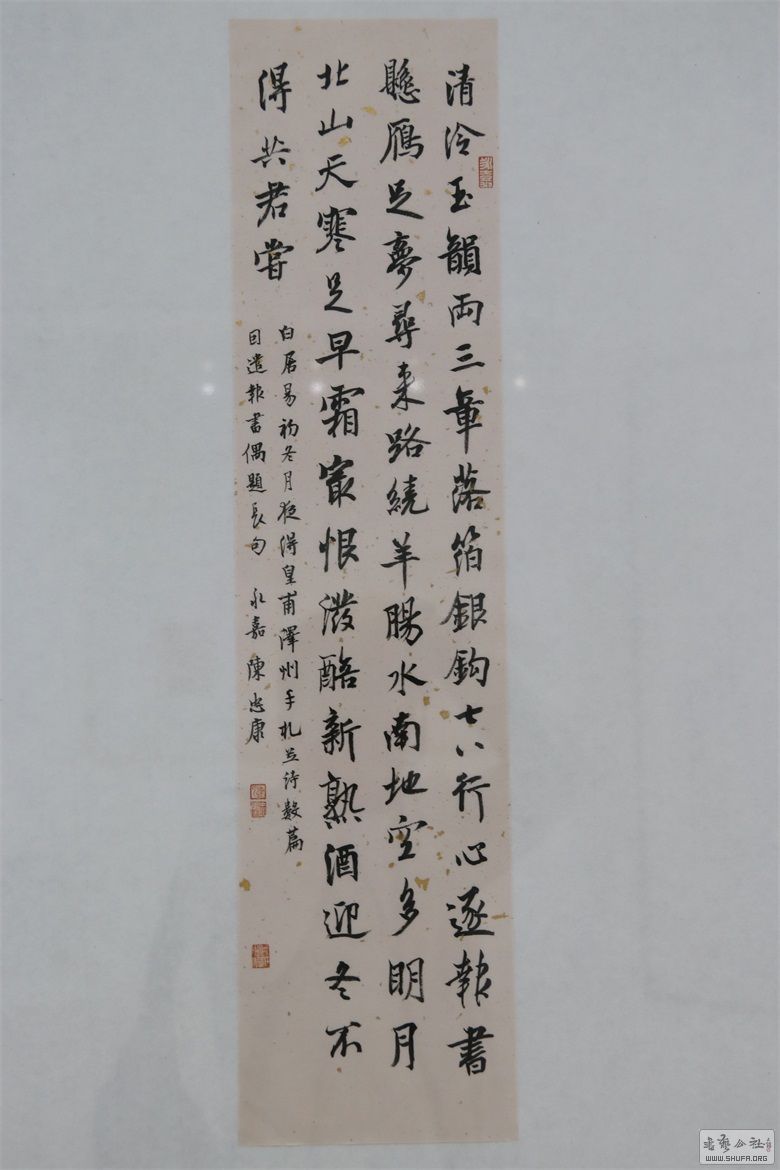 清泠玉韻兩三章落箔銀鈎七八行心逐報書
懸鴈足夢尋来路繞羊腸水南地空多明月
北山天寒足早霜最恨潑醅新熟酒迎冬不
得共君嘗
白居易初冬月夜得皇甫澤州手札並詩數篇
因遣報書偶題長句 永嘉陳忠康
書藝公社
WWW.SHUFA.ORG